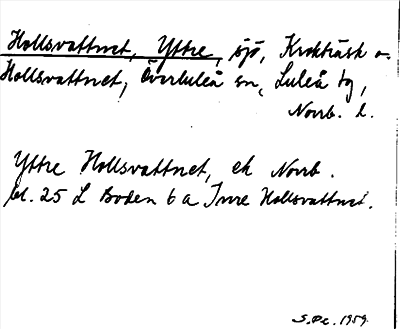 Hollsvattnet, Yttre, sjö, Krokträsk o.
Hollsvattnet, Överluleå sn, Luleå tg,
Norrb. l.
Yttre Hollsvattnet, ek Norrb.
bl. 25 L Boden 6 a Inre Hollsvattnet.
1959